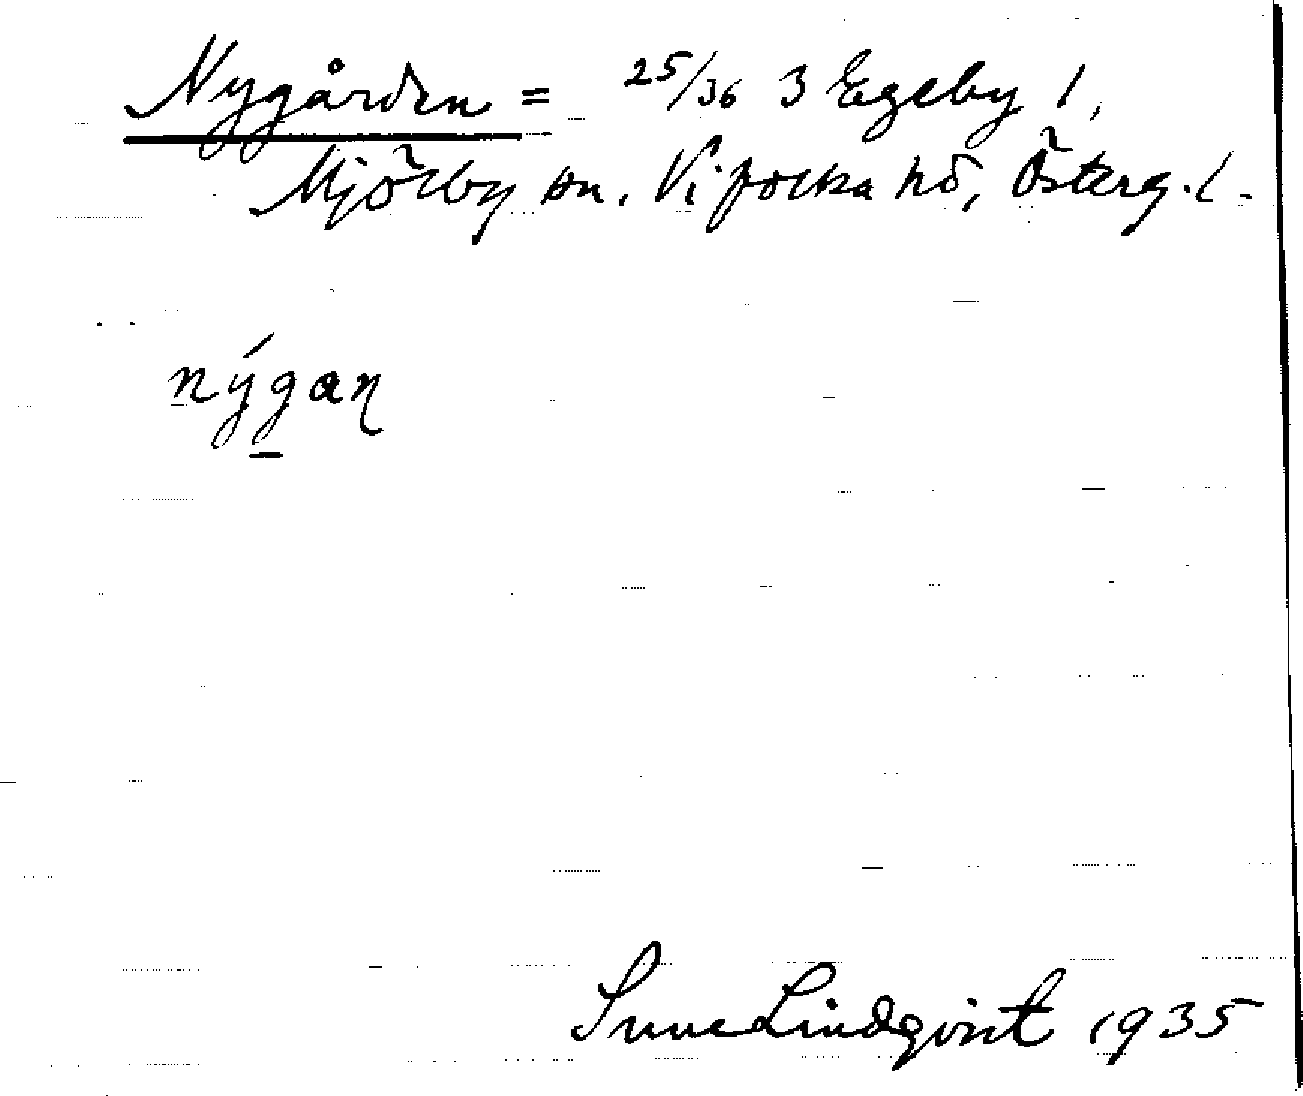 Nygården = 25/36 3 Egeby 1,
Mjölby sn, Vifolka hd, Österg. l.
nýgaɳ
Sune Lindqvist 1935